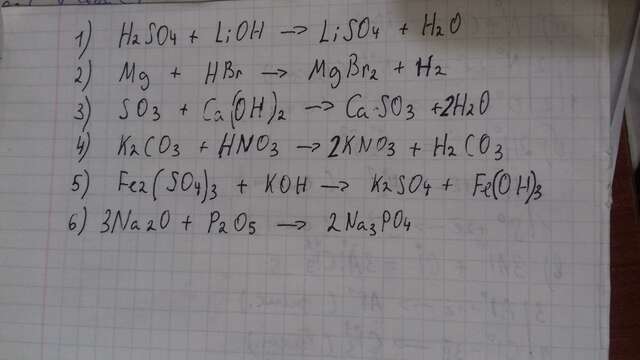 1) H2SO4 + LiOH → LiSO4 + H2O
2) Mg + HBr → MgBr2 + H2
3) SO3 + Ca(OH)2 → CaSO3 + 2H2O
4) K2CO3 + HNO3 → 2KNO3 + H2CO3
5) Fe2(SO4)3 + KOH → K2SO4 + Fe(OH)3
6) 3Na2O + P2O5 → 2Na3PO4